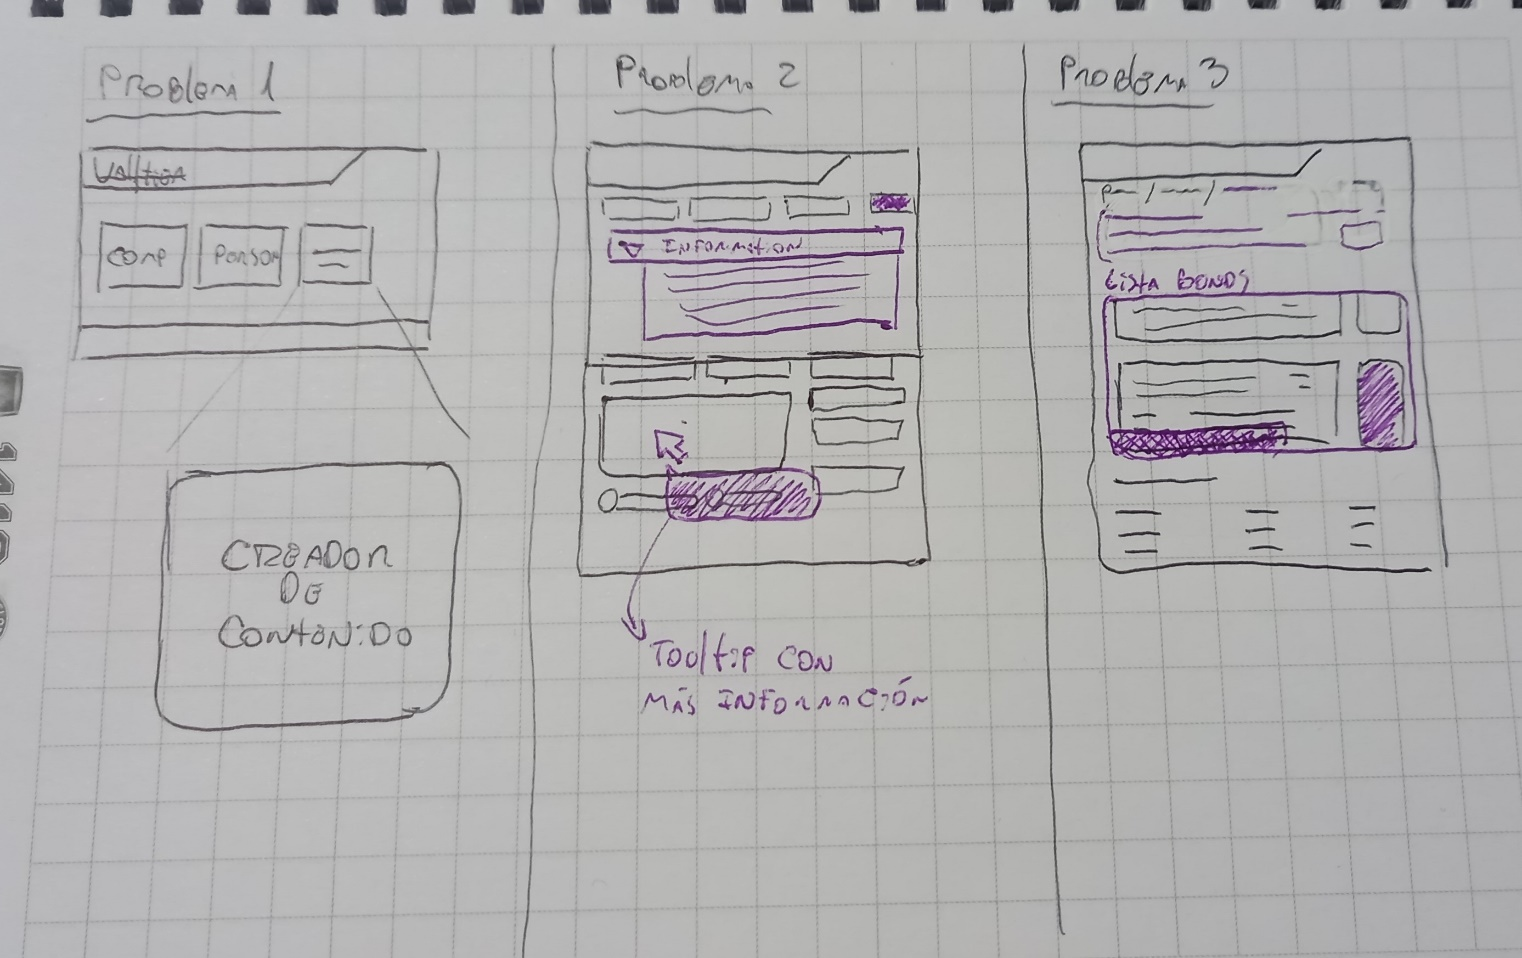 Problema 1
Comp
Person
CREADOR
DE
CONTENIDO
Problema 2
INFORMATION
Tooltip CON
MÁS INFORMACIÓN
Problema 3
Lista BONOS